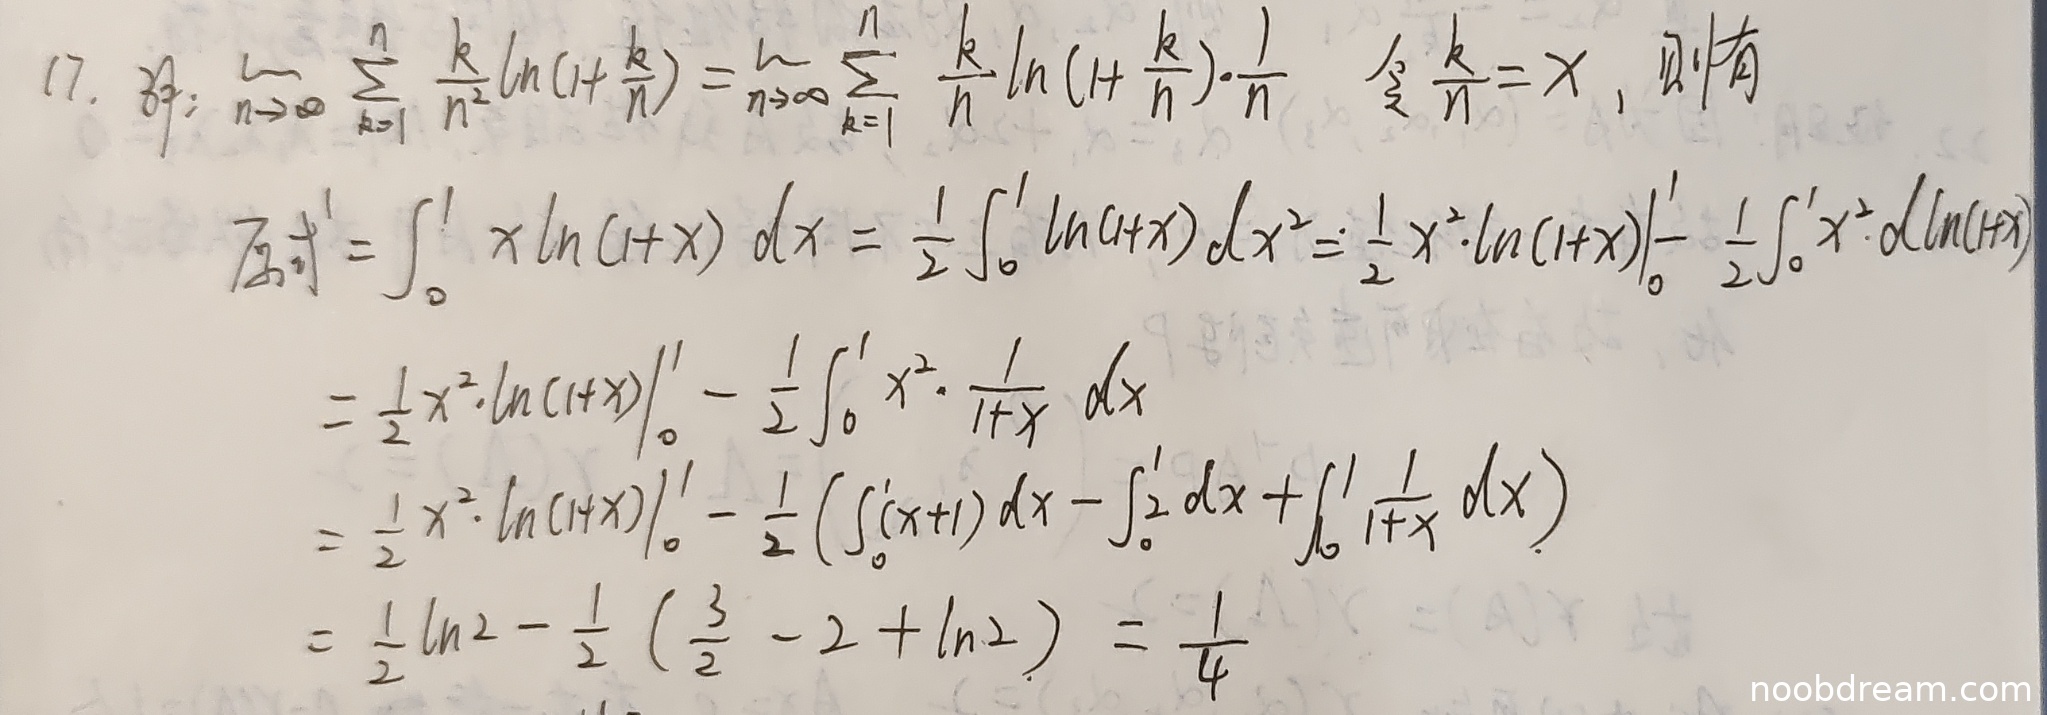 17. 解: lim_{n→∞} ∑_{k=1}^{n} k/n² ln(1+k/n) = lim_{n→∞} ∑_{k=1}^{n} k/n ln(1+k/n)·1/n 令 k/n = x, 则有
原式 = ∫₀¹ x ln(1+x) dx = 1/2 ∫₀¹ ln(1+x) dx² = 1/2 x²·ln(1+x)|₀¹ - 1/2 ∫₀¹ x²·d ln(1+x)
= 1/2 x²·ln(1+x)|₀¹ - 1/2 ∫₀¹ x²·1/(1+x) dx
= 1/2 x²·ln(1+x)|₀¹ - 1/2 (∫₀¹ (x+1) dx - ∫₀¹ 2 dx + ∫₀¹ 1/(1+x) dx)
= 1/2 ln2 - 1/2 (3/2 - 2 + ln2) = 1/4
noobdream.com